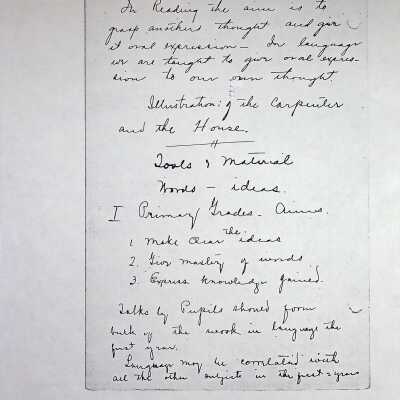 In Reading the aim is to
grasp another's thought and give
it oral expression — In language
we are taught to give oral expres-
sion to our own thought
Illustration: of the Carpenter
and the House.
Tools & Material
Words — ideas.
I Primary Grades — Aims.
1. Make clear the ideas
2. Give mastery of words
3. Express knowledge gained.
Talks by Pupils should form
bulk of the work in language the
first year.
Language may be correlated with
all the other subjects in the first 2 years